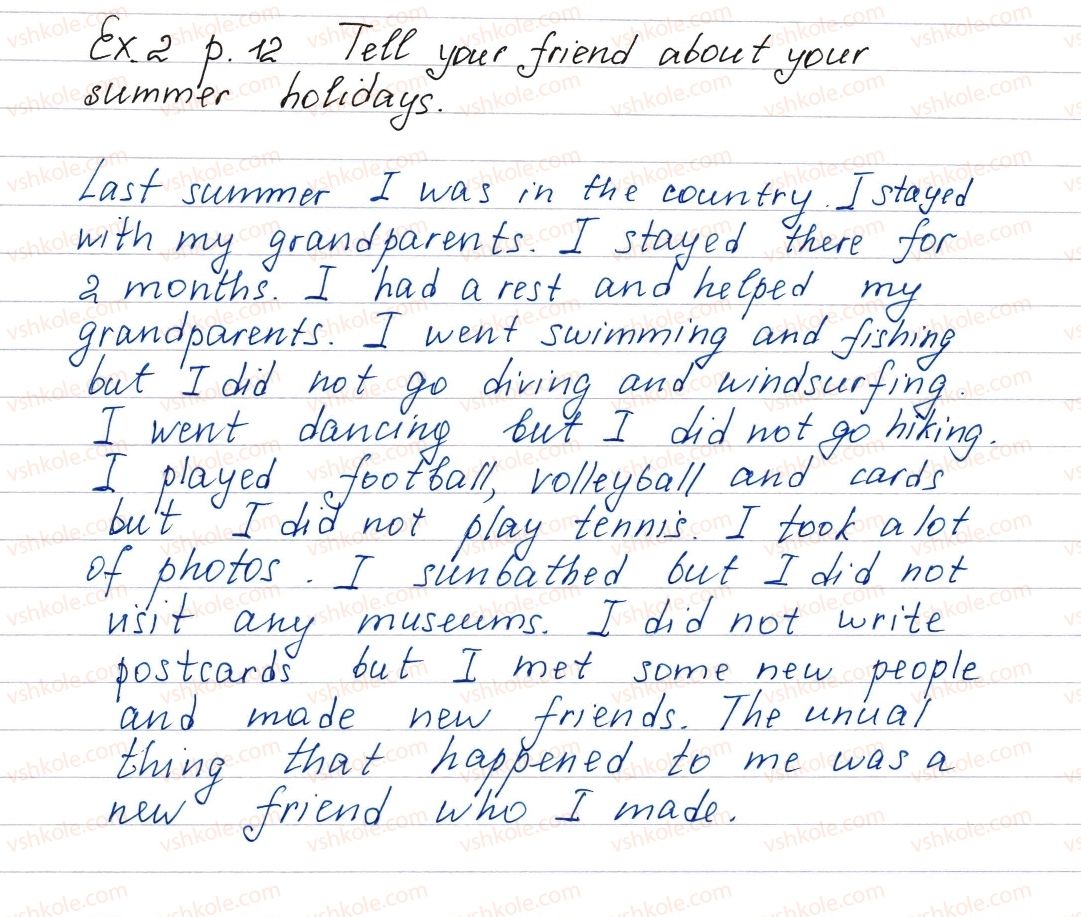 Ex. 2 p. 12 Tell your friend about your
summer holidays.
Last summer I was in the country. I stayed
with my grandparents. I stayed there for
2 months. I had a rest and helped my
grandparents. I went swimming and fishing
but I did not go diving and windsurfing.
I went dancing but I did not go hiking.
I played football, volleyball and cards
but I did not play tennis. I took a lot
of photos. I sunbathed but I did not
visit any museums. I did not write
postcards but I met some new people
and made new friends. The unual
thing that happened to me was a
new friend who I made.